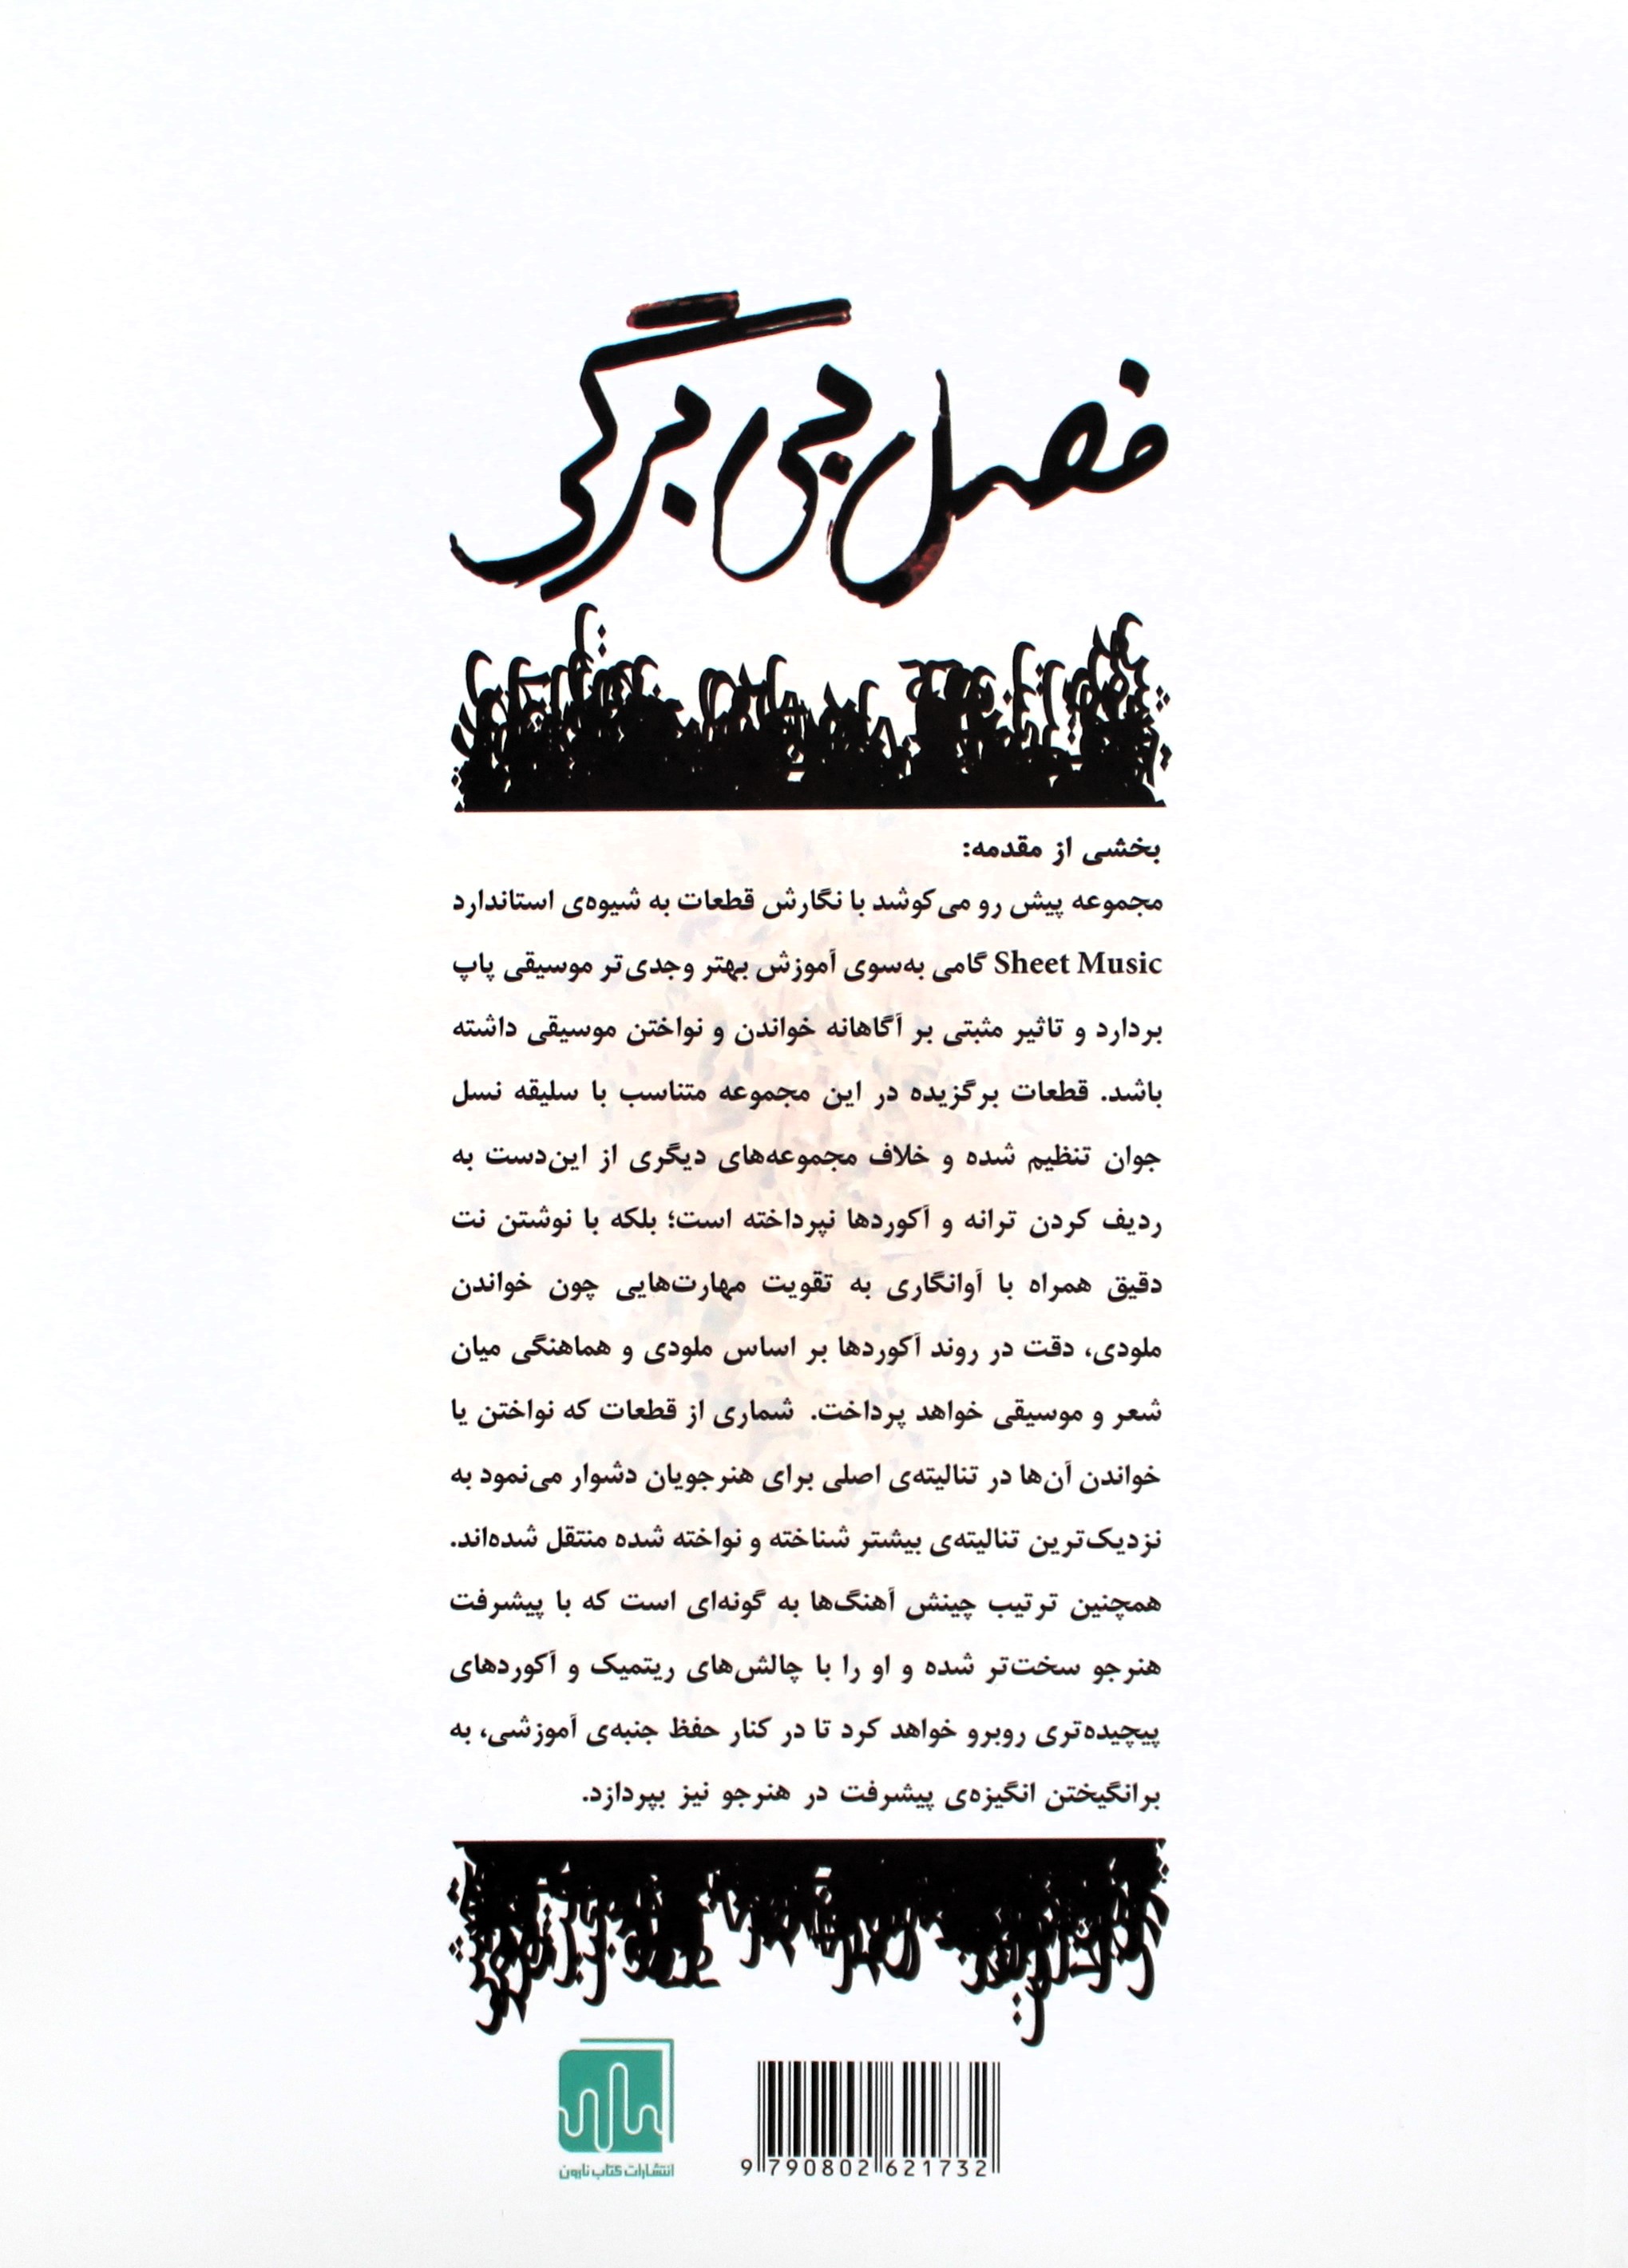 فصل بی برگی
بخشی از مقدمه:
مجموعه پیش رو می‌کوشد با نگارش قطعات به شیوه‌ی استاندارد
Sheet Music گامی به‌سوی آموزش بهتر وجدی‌تر موسیقی پاپ
بردارد و تاثیر مثبتی بر آگاهانه خواندن و نواختن موسیقی داشته
باشد. قطعات برگزیده در این مجموعه متناسب با سلیقه نسل
جوان تنظیم شده و خلاف مجموعه‌های دیگری از این‌دست به
ردیف کردن ترانه و آکوردها نپرداخته است؛ بلکه با نوشتن نت
دقیق همراه با آوانگاری به تقویت مهارت‌هایی چون خواندن
ملودی، دقت در روند آکوردها بر اساس ملودی و هماهنگی میان
شعر و موسیقی خواهد پرداخت. شماری از قطعات که نواختن یا
خواندن آن‌ها در تنالیته‌ی اصلی برای هنرجویان دشوار می‌نمود به
نزدیک‌ترین تنالیته‌ی بیشتر شناخته و نواخته شده منتقل شده‌اند.
همچنین ترتیب چینش آهنگ‌ها به گونه‌ای است که با پیشرفت
هنرجو سخت‌تر شده و او را با چالش‌های ریتمیک و آکوردهای
پیچیده‌تری روبرو خواهد کرد تا در کنار حفظ جنبه‌ی آموزشی، به
برانگیختن انگیزه‌ی پیشرفت در هنرجو نیز بپردازد.
انتشارات کتاب نارون
9 790802 621732